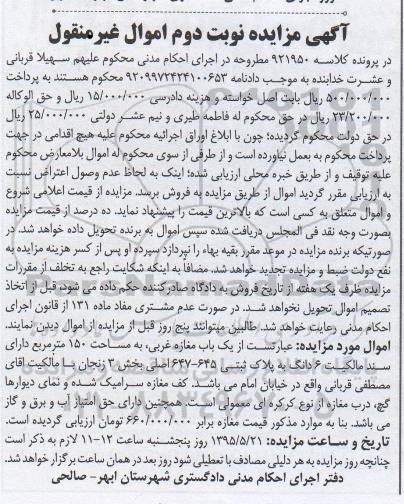 آگهی مزایده نوبت دوم اموال غیرمنقول
در پرونده کلاسه ۹۲۱۹۵۰ مطروحه در اجرای احکام مدنی محکوم علیهم سهیلا قربانی
و عشرت خدابنده به موجب دادنامه ۹۲۰۹۹۷۲۴۲۴۱۰۰۶۵۳ محکوم هستند به پرداخت
۵۰۰/۰۰۰/۰۰۰ ریال بابت اصل خواسته و هزینه دادرسی ۱۵/۰۰۰/۰۰۰ ریال و حق الوکاله
۲۳/۲۰۰/۰۰۰ ریال در حق محکوم له فاطمه طیری و نیم عشر دولتی ۲۵/۰۰۰/۰۰۰ ریال
در حق دولت محکوم گردید؛ چون با ابلاغ اوراق اجرائیه محکوم علیه هیچ اقدامی در جهت
پرداخت محکوم به بعمل نیاورده است و از طرفی از سوی محکوم له اموال بلامعارض محکوم
علیه توقیف و از طریق خبره محلی ارزیابی شده؛ اینک به لحاظ عدم وصول اعتراض نسبت
به ارزیابی مقرر گردید اموال از طریق مزایده به فروش برسد. مزایده از قیمت اعلامی شروع
و اموال متعلق به کسی است که بالاترین قیمت را پیشنهاد نماید. ده درصد از قیمت مزایده
بصورت وجه نقد فی المجلس دریافت شده سپس اموال به برنده تحویل داده خواهد شد. در
صورتیکه برنده مزایده در موعد مقرر بقیه بهاء را نپردازد سپرده او پس از کسر هزینه مزایده به
نفع دولت ضبط و مزایده تجدید خواهد شد. مضافاً به اینکه شکایت راجع به تخلف از مقررات
مزایده ظرف یک هفته از تاریخ فروش به دادگاه صادر کننده حکم داده می شود، قبل از اتخاذ
تصمیم اموال تحویل نخواهد شد. در صورت عدم مشتری مفاد ماده ۱۳۱ از قانون اجرای
احکام مدنی رعایت خواهد شد. طالبین میتوانند پنج روز قبل از مزایده از اموال دیدن نمایند.
اموال مورد مزایده: عبارتست از یک باب مغازه غربی، به مساحت ۱۵۰ مترمربع دارای
سند مالکیت ۶ دانگ به پلاک ثبتی ۶۴۵-۶۴۷ اصلی بخش ۲ زنجان با مالکیت اقای
مصطفی قربانی واقع در خیابان امام می باشد. کف مغازه سرامیک شده و نمای دیوارها
گچ، درب مغازه از نوع کرکره ای معمولی است. همچنین دارای حق امتیاز آب و برق و گاز
می باشد. بنا به موارد مذکور قیمت مغازه برابر ۶۶۰/۰۰۰/۰۰۰ تومان ارزیابی گردیده است.
تاریخ و ساعت مزایده: ۱۳۹۵/۵/۲۱ روز پنجشنبه ساعت ۱۲-۱۱ لازم به ذکر است
چنانچه روز مزایده به هر دلیلی مصادف با تعطیلی شود روز بعد در همان ساعت برگزار خواهد شد.
دفتر اجرای احکام مدنی دادگستری شهرستان ابهر- صالحی